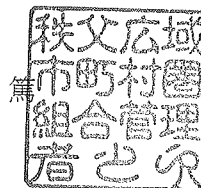 秩父広域
市町村圏
組合管理
者之印
篤